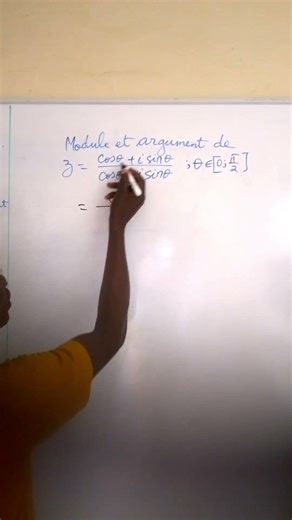 Module et argument de
z = cosθ + i sinθ / cosθ i sinθ ; θ ∈ [0; π/2]
= —